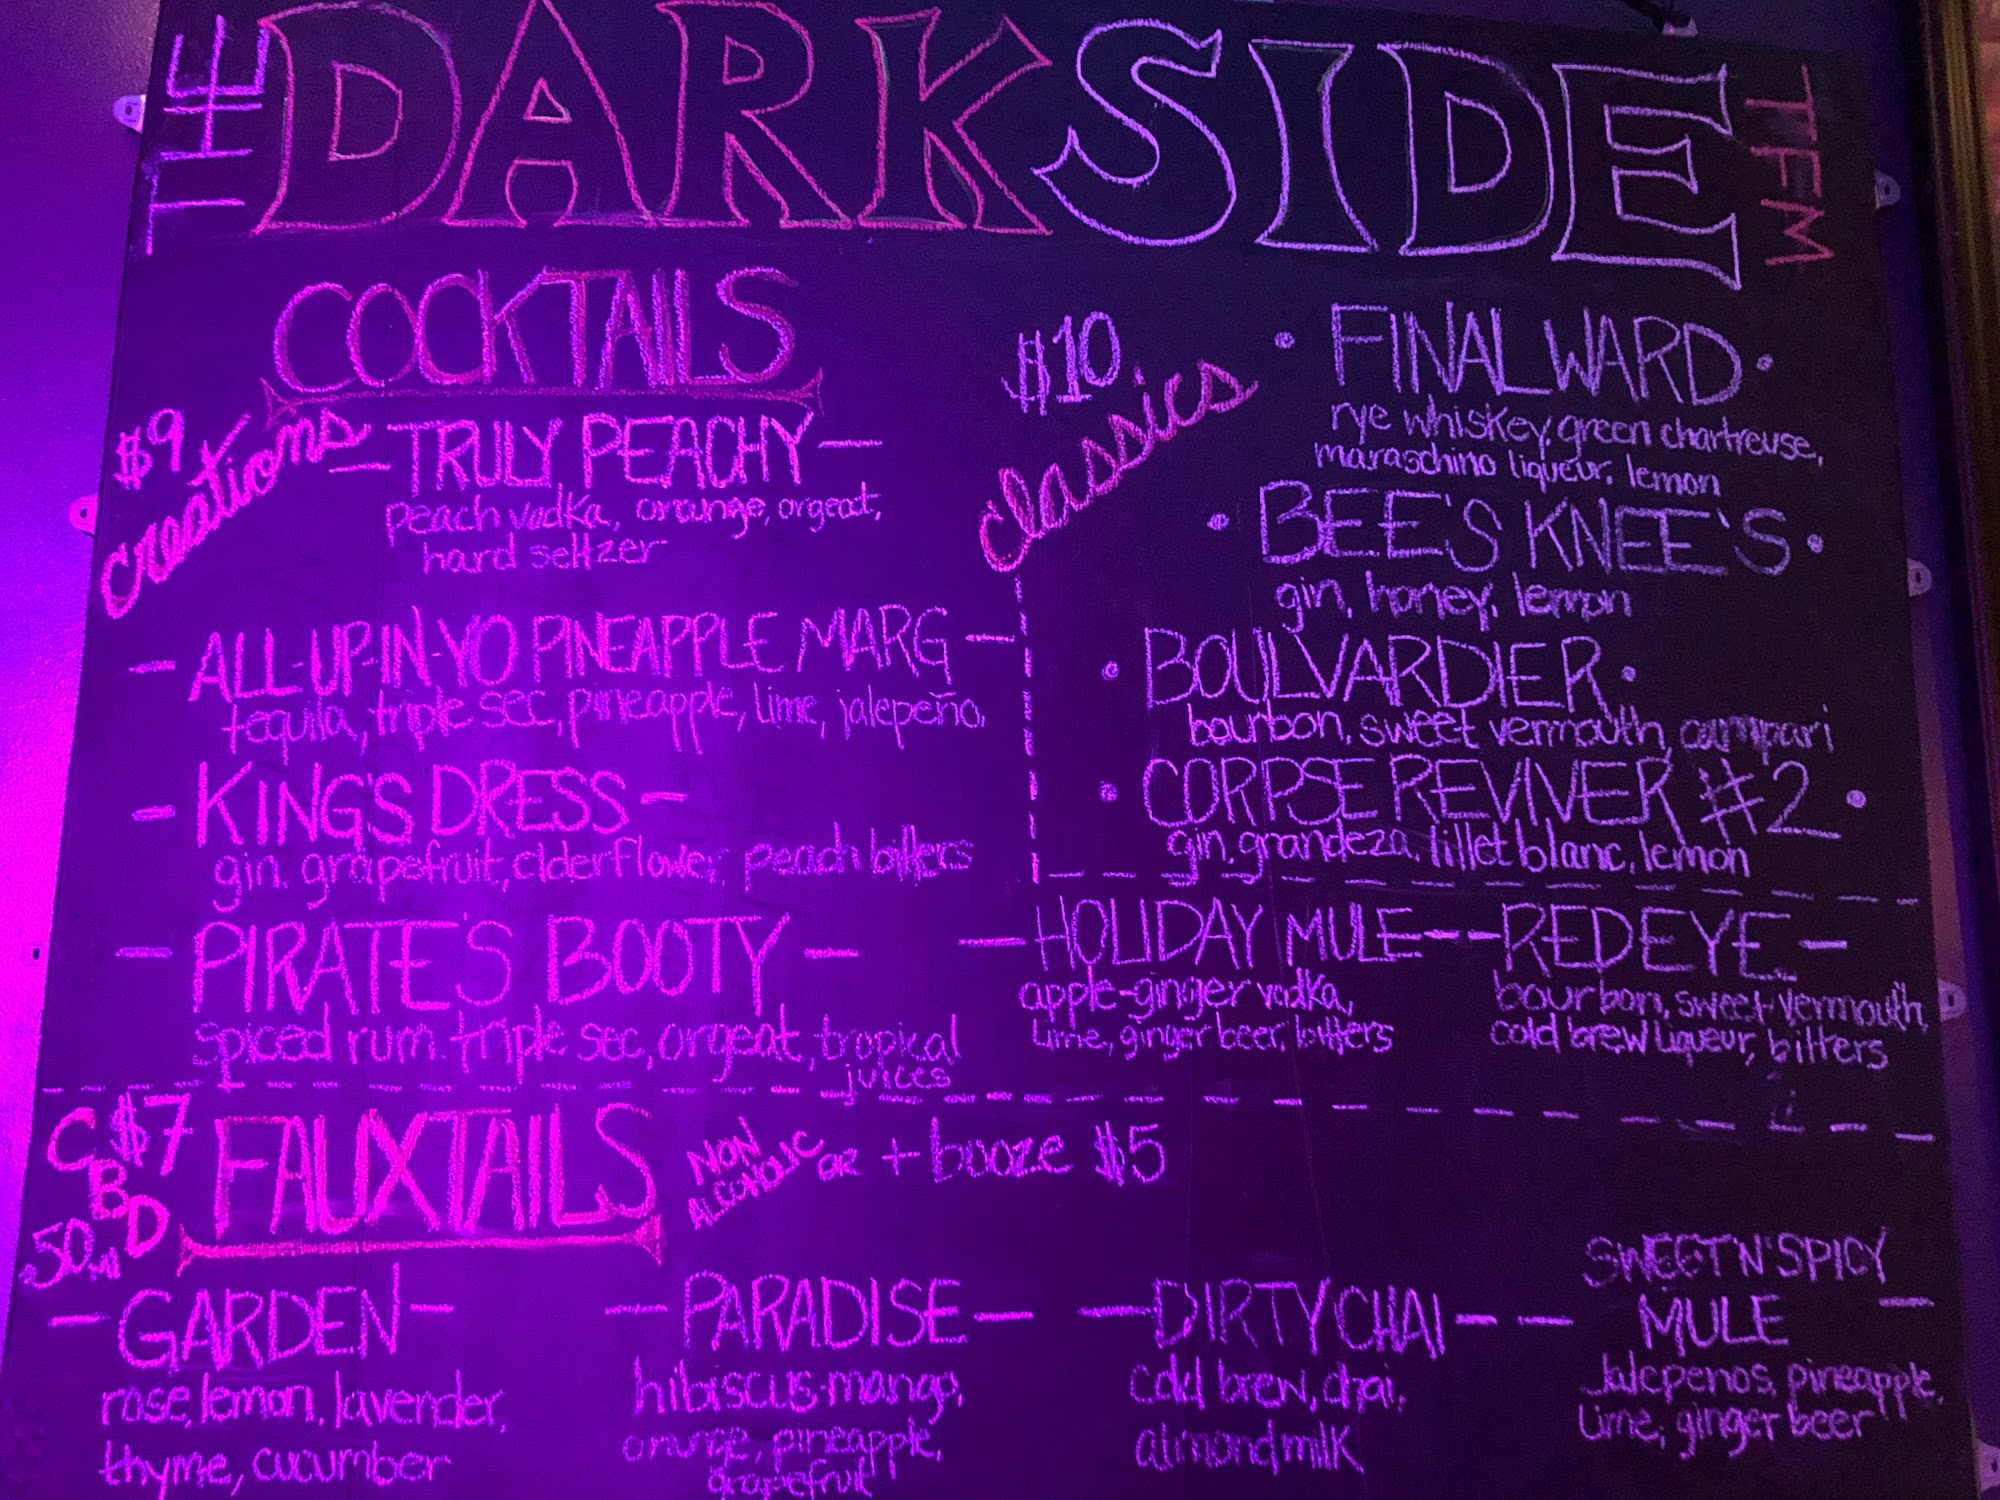 THE DARKSIDE TFM
COCKTAILS
$9
creations
TRULY PEACHY
peach vodka, orange, orgeat,
hard seltzer
ALL-UP-IN-YO PINEAPPLE MARG
tequila, triple sec, pineapple, lime, jalepeño,
KING'S DRESS
gin, grapefruit, elderflower, peach bitters
PIRATE'S BOOTY
spiced rum, triple sec, orgeat, tropical
juices
$10
classics
FINAL WARD
rye whiskey, green chartreuse,
maraschino liqueur, lemon
BEE'S KNEE'S
gin, honey, lemon
BOULVARDIER
bourbon, sweet vermouth, campari
CORPSE REVIVER #2
gin, grandeza, lillet blanc, lemon
HOLIDAY MULE
apple-ginger vodka,
lime, ginger beer, bitters
RED EYE
bourbon, sweet vermouth,
cold brew liqueur, bitters
$7
CBD
FAUXTAILS
NON
ALCOHOLIC OR + booze $5
GARDEN
rose, lemon, lavender,
thyme, cucumber
PARADISE
hibiscus-mango,
orange, pineapple,
grapefruit
DIRTY CHAI
cold brew, chai,
almond milk
SWEET N' SPICY
MULE
Jalepenos, pineapple,
lime, ginger beer